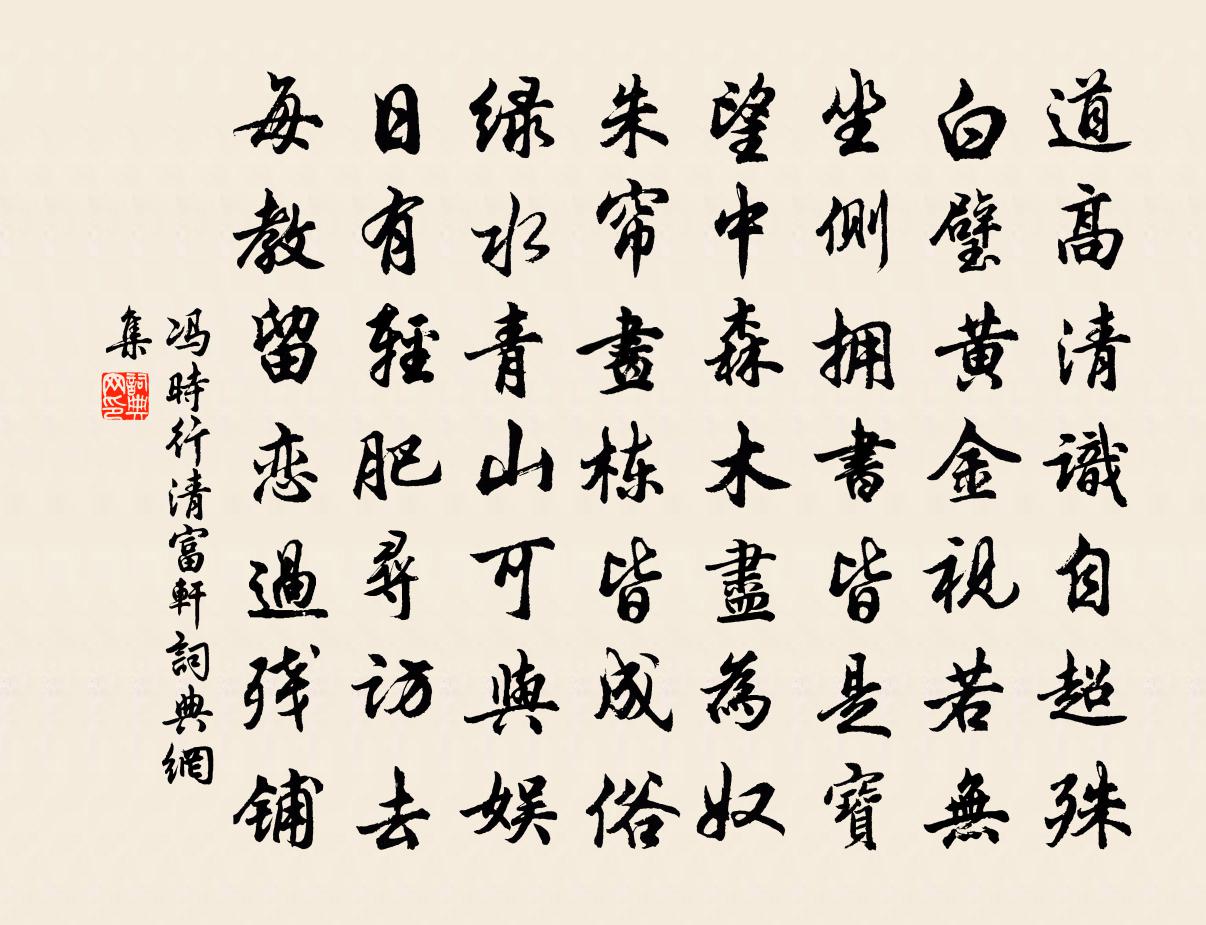 道高清識自超殊
白璧黃金視若無
坐側拥書皆是寶
望中森木盡為奴
朱帘畫栋皆成俗
绿水青山可與娱
日有輕肥尋訪去
每教留恋過残铺
冯時行清富軒詞典網
集
詞典
网印